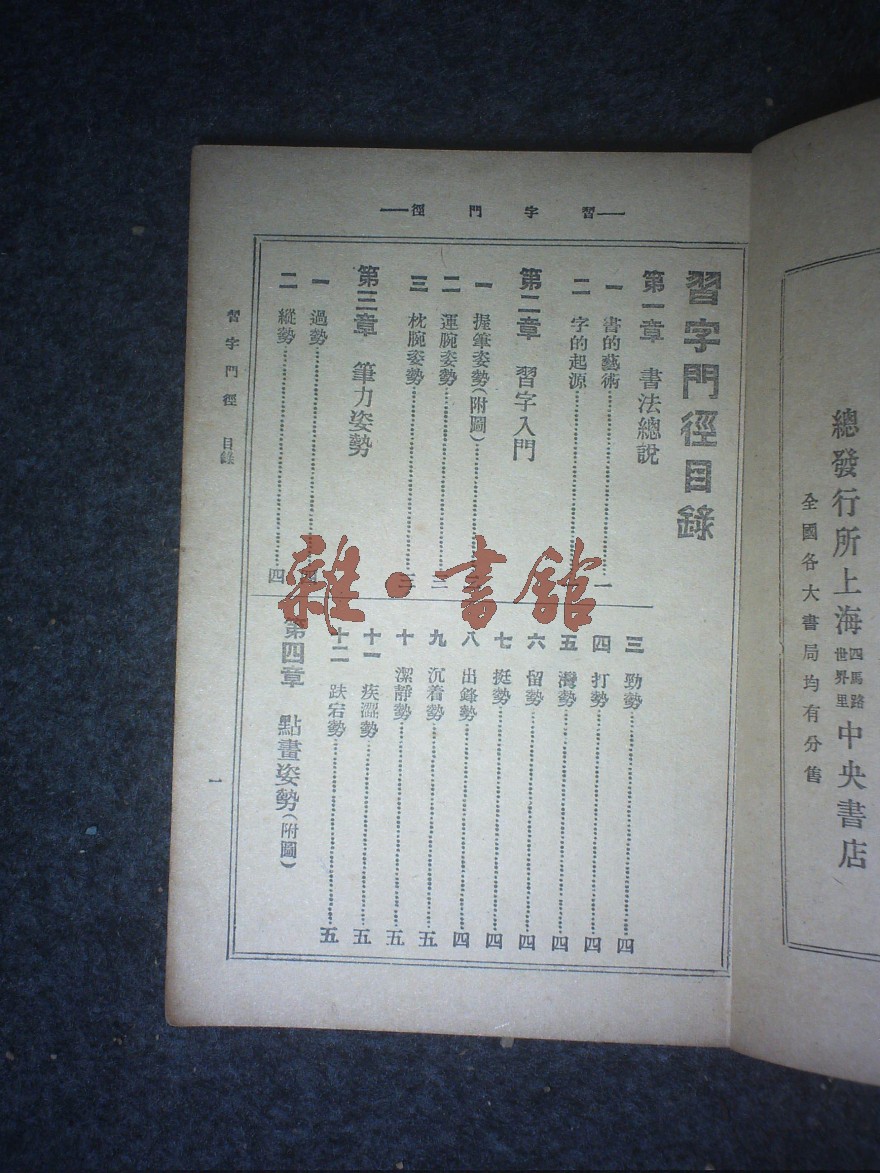 總發行所上海四馬路世界里中央書店
全國各大書局均有分售
習字門徑
習字門徑目錄
第一章 書法總說
一 書的藝術……一
二 字的起源……
第二章 習字入門
一 握筆姿勢(附圖)……
二 運腕姿勢……三
三 枕腕姿勢……三
第三章 筆力姿勢
一 過勢……四
二 縱勢……四
三 勁勢……四
四 打勢……四
五 灣勢……四
六 留勢……四
七 挺勢……四
八 出鋒勢……四
九 沉着勢……五
十 潔靜勢……五
十一 疾澀勢……五
十二 跌宕勢……五
第四章 點畫姿勢(附圖)
習字門徑 目錄
一
雜·書館